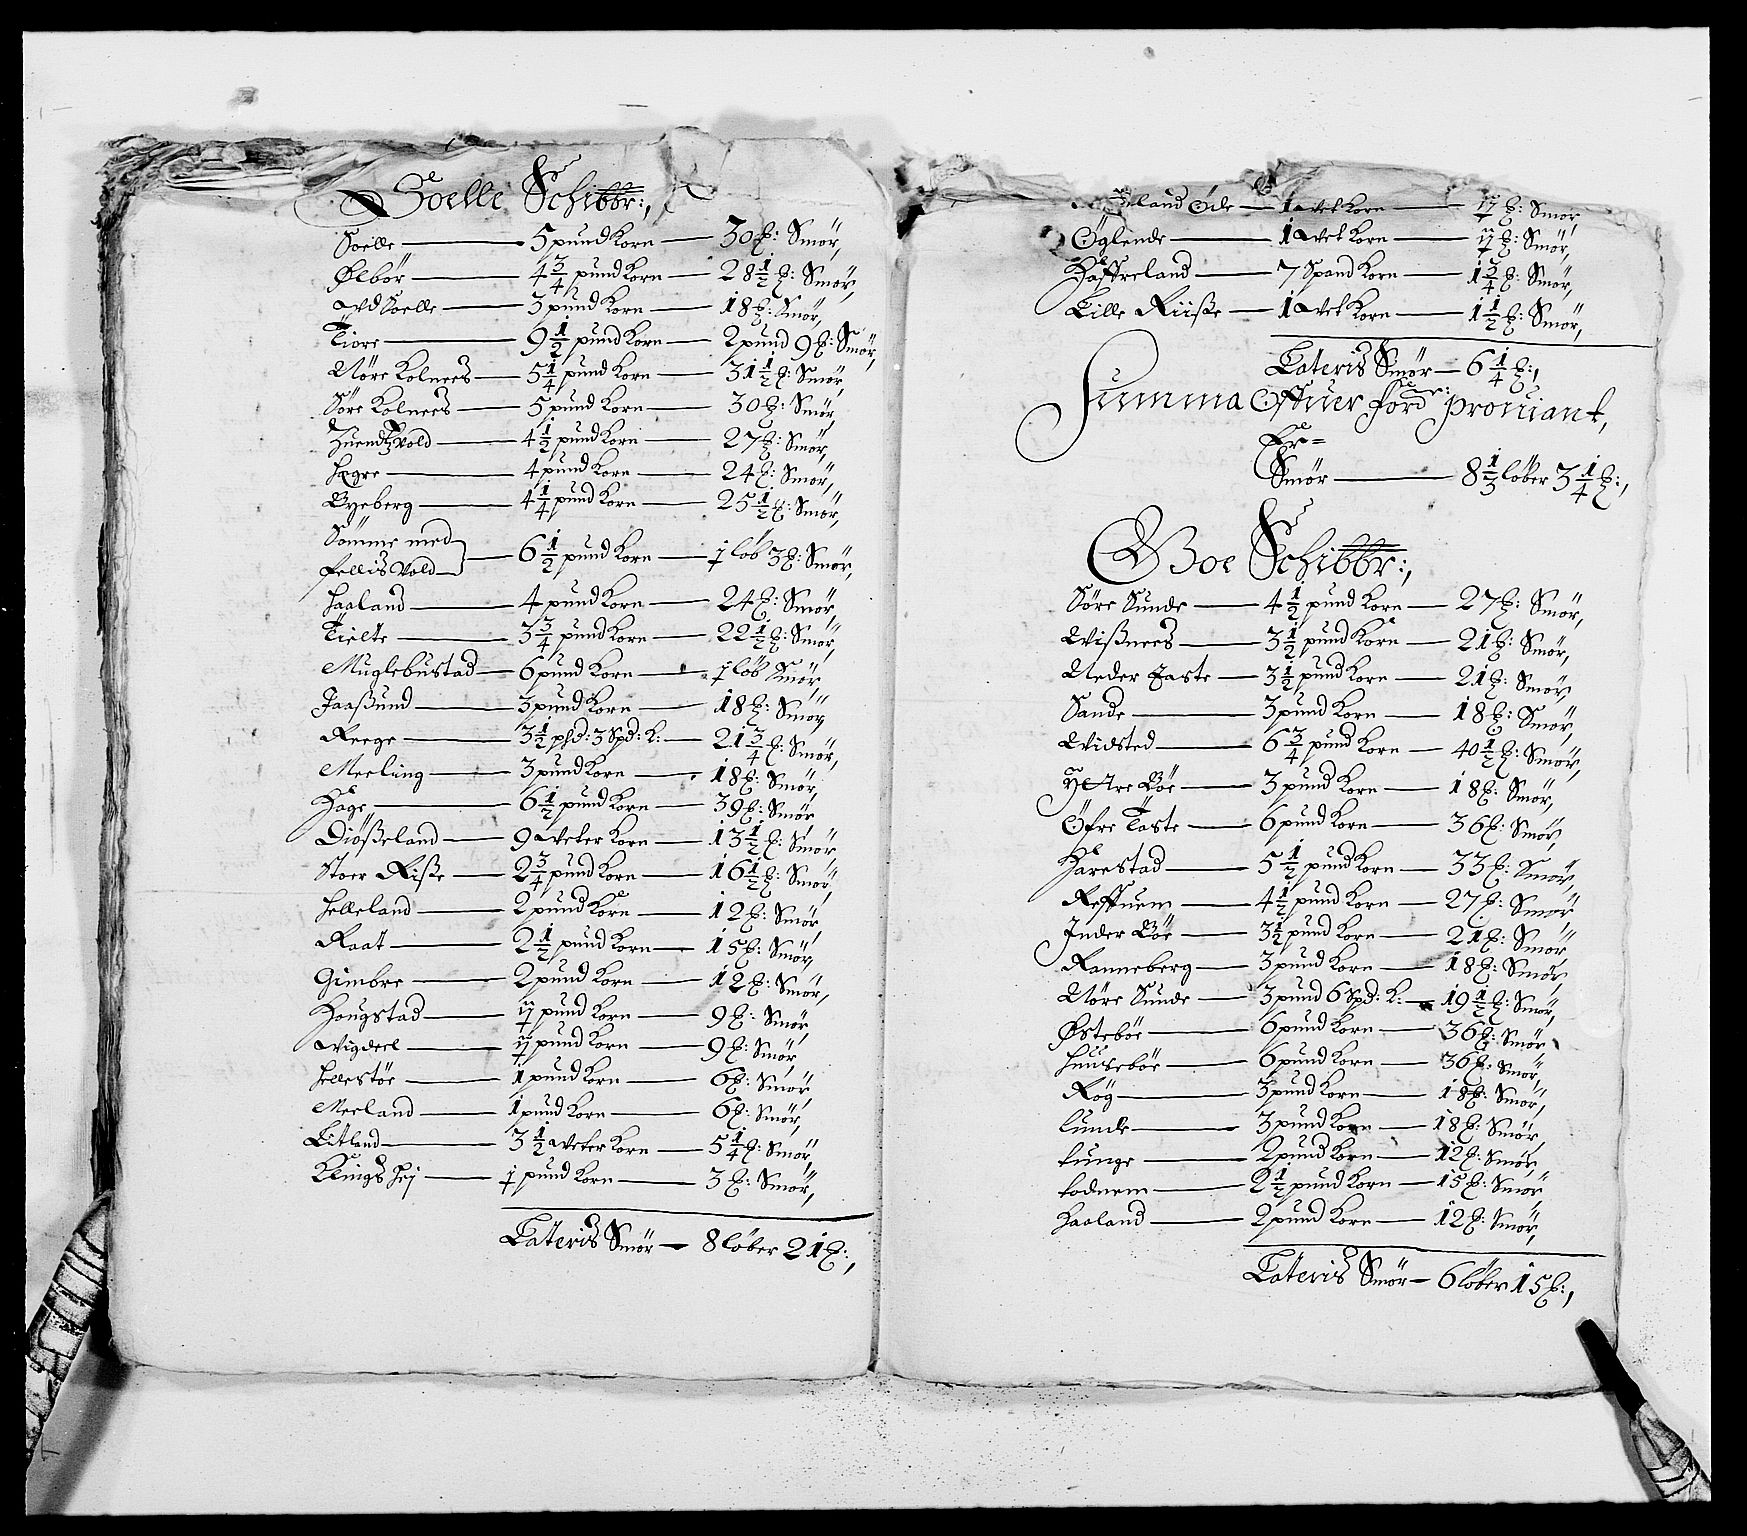 Soelle Schibbr:,
Soelle — 5 pund Korn — 30 ℔: Smör,
Ølbör — 4 3/4 pund Korn — 28 1/2 ℔: Smör,
Vdsoelle — 3 pund Korn — 18 ℔: Smör,
Tiore — 9 1/2 pund Korn — 2 pund 9 ℔: Smör,
Nöre Kolnees — 5 1/4 pund Korn — 31 1/2 ℔: Smör
Söre Kolnees — 5 pund Korn — 30 ℔: Smör,
Huendtzvold — 4 1/2 pund Korn — 27 ℔: Smör,
Hegre — 4 pund Korn — 24 ℔: Smör,
Byeberg — 4 1/4 pund Korn — 25 1/2 ℔: Smör,
Sömme med
Fellisvold — 6 1/2 pund Korn — 1 löb 3 ℔: Smör,
Haaland — 4 pund Korn — 24 ℔: Smör,
Tielte — 3 3/4 pund Korn — 22 1/2 ℔: Smör,
Muglebustad — 6 pund Korn — 1 löb Smör
Jaaßund — 3 pund Korn — 18 ℔: Smör,
Reege — 3 1/2 pd: 3 Spd: K: — 21 3/4 ℔: Smör,
Meeling — 3 pund Korn — 18 ℔: Smör,
Hage — 6 1/2 pund Korn — 39 ℔: Smör
Diößeland — 9 Veter Korn — 13 1/2 ℔: Smör
Stoer Riße — 2 3/4 pund Korn — 16 1/2 ℔: Smör,
Helleland — 2 pund Korn — 12 ℔: Smör
Raat — 2 1/2 pund Korn — 15 ℔: Smör,
Gimbre — 2 pund Korn — 12 ℔: Smör,
Hougstad — 1 1/2 pund Korn — 9 ℔: Smör
Vigdeel — 1 1/2 pund Korn — 9 ℔: Smör
Hellestöe — 1 pund Korn — 6 ℔: Smör,
Meeland — 1 pund Korn — 6 ℔: Smör,
Litland — 3 1/2 Veter Korn — 5 1/4 ℔: Smör,
Klings hej — 1/2 pund Korn — 3 ℔: Smör,
Lateris Smör — 8 löber 21 ℔:,
land Øde — 1 Vet Korn — 1 1/2 ℔: Smör
Öglende — 1 Vet Korn — 1 1/2 ℔: Smör,
Haffreland — 7 Spand Korn — 1 3/4 ℔: Smör,
Lille Riiße — 1 Vet Korn — 1 1/2 ℔: Smör,
Lateris Smör — 6 1/4 ℔:,
Summa Offuer ford: Prouiant,
Er=
Smör — 8 1/3 löber 3 1/4 ℔:,
Boe Schibbr:,
Söre Sunde — 4 1/2 pund Korn — 27 ℔: Smör,
Wißnees — 3 1/2 pund Korn — 21 ℔: Smör,
Neder Taste — 3 1/2 pund Korn — 21 ℔: Smör,
Sande — 3 pund Korn — 18 ℔: Smör,
Widsted — 6 3/4 pund Korn — 40 1/2 ℔: Smör,
Yttre Böe — 3 pund Korn — 18 ℔: Smör,
Öfre Taste — 6 pund Korn — 36 ℔: Smör,
Harestad — 5 1/2 pund Korn — 33 ℔: Smör,
Reffnem — 4 1/2 pund Korn — 27 ℔: Smör
Inder Böe — 3 1/2 pund Korn — 21 ℔: Smör
Ranneberg — 3 pund Korn — 18 ℔: Smör
Nöre Sunde — 3 pund 6 Spd: K: — 19 1/2 ℔: Smör,
Østeböe — 6 pund Korn — 36 ℔: Smör
Huuseböe — 6 pund Korn — 36 ℔: Smör,
Røg — 3 pund Korn — 18 ℔: Smör,
Lunde — 3 pund Korn — 18 ℔: Smör,
Tunge — 2 pund Korn — 12 ℔: Smör,
Todnem — 2 1/2 pund Korn — 15 ℔: Smör
Haaland — 2 pund Korn — 12 ℔: Smör,
Lateris Smör — 6 löber 15 ℔:,